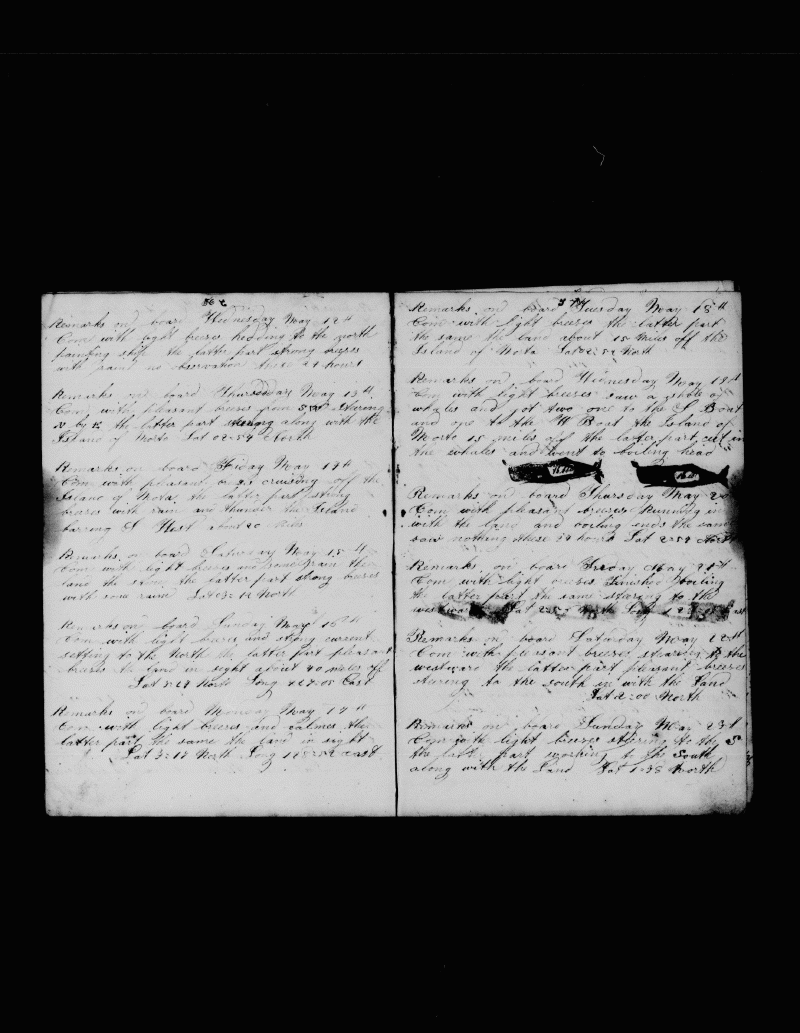 Remarks on board Wednesday May 12th
Com with light breeses hedding to the north
the latter part strong breeses
with rain no observation these 24 hours
Remarks on board Thursday May 13th
Com with pleasant breeses from steering
N by E the latter part steering along with the
Island of Morto Lat 02=54 North
Remarks on board Friday May 14th
Com with pleasant cruising off the
Island of Mota the latter part strong
breeses with rain and thunder the Island
barring West about 20 miles
Remarks on board Saturday May 15th
Com with light breeses and some rain the
land the same the latter part strong breeses
with some raine Lat North
Remarks on board Sunday May 16th
Com with light breeses and strong current
setting to the North the latter part pleasant
breeses the land in sight about 40 miles off
Lat North Long East
Remarks on board Monday May 17th
Com with light breeses and calmes the
latter part the same the land in sight
Lat 3=13 North Long East
Remarks on board Tuesday May 18th
Com with light breeses the latter part
the same the land about 15 miles off the
Island of Mota Lat North
Remarks on board Wednesday May 19th
Com with light breeses saw a shole of
whales and got two one to the S Boat
and one to the W Boat the Island of
Morto 15 miles off the latter part cut in
the whales and went to boiling head
Remarks on board Thursday May 20
Com with pleasant breeses Running in
with the land and boiling ends the same
saw nothing these 24 hours Lat 2=54 North
Remarks on board Friday May 21st
Com with light breeses finished boiling
the latter part the same stearing to the
Lat North Long East
Remarks on board Saturday May 22th
Com with pleasant breese stearing to the
westward the latter part pleasant breeses
stearing to the south in with the land
Lat 2=00 North
Remarks on board Sunday May 23d
Com with light breese steering to the S
the latter part working to the South
along with the land Lat 1=38 North